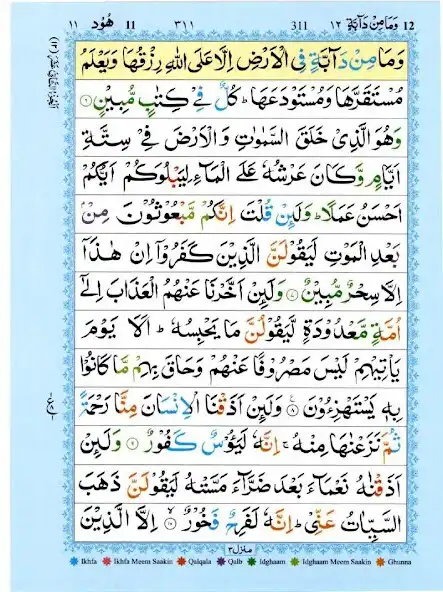 12 وَمَا مِنْ دَآبَّةٍ ١٢ 311 ٣١١ 11 هُوْد ١١
وَمَا مِنْ دَآبَّةٍ فِي الْاَرْضِ اِلَّا عَلَى اللّٰهِ رِزْقُهَا وَيَعْلَمُ
مُسْتَقَرَّهَا وَمُسْتَوْدَعَهَا ؕ كُلٌّ فِيْ كِتٰبٍ مُّبِيْنٍ ۝٦
وَهُوَ الَّذِيْ خَلَقَ السَّمٰوٰتِ وَالْاَرْضَ فِيْ سِتَّةِ
اَيَّامٍ وَّكَانَ عَرْشُهٗ عَلَى الْمَآءِ لِيَبْلُوَكُمْ اَيُّكُمْ
اَحْسَنُ عَمَلًا ؕ وَلَئِنْ قُلْتَ اِنَّكُمْ مَّبْعُوْثُوْنَ مِنْۢ
بَعْدِ الْمَوْتِ لَيَقُوْلَنَّ الَّذِيْنَ كَفَرُوْۤا اِنْ هٰذَاۤ
اِلَّا سِحْرٌ مُّبِيْنٌ ۝٧ وَلَئِنْ اَخَّرْنَا عَنْهُمُ الْعَذَابَ اِلٰۤى
اُمَّةٍ مَّعْدُوْدَةٍ لَّيَقُوْلُنَّ مَا يَحْبِسُهٗ ؕ اَلَا يَوْمَ
يَاْتِيْهِمْ لَيْسَ مَصْرُوْفًا عَنْهُمْ وَحَاقَ بِهِمْ مَّا كَانُوْا
بِهٖ يَسْتَهْزِءُوْنَ ۝٨ وَلَئِنْ اَذَقْنَا الْاِنْسَانَ مِنَّا رَحْمَةً
ثُمَّ نَزَعْنٰهَا مِنْهُ ۚ اِنَّهٗ لَيَـُٔوْسٌ كَفُوْرٌ ۝٩ وَلَئِنْ
اَذَقْنٰهُ نَعْمَآءَ بَعْدَ ضَرَّآءَ مَسَّتْهُ لَيَقُوْلَنَّ ذَهَبَ
السَّيِّاٰتُ عَنِّيْ ؕ اِنَّهٗ لَفَرِحٌ فَخُوْرٌ ۝١٠ اِلَّا الَّذِيْنَ
منزل ٣
Ikhfa Ikhfa Meem Saakin Qalqala Qalb Idghaam Idghaam Meem Saakin Ghunna